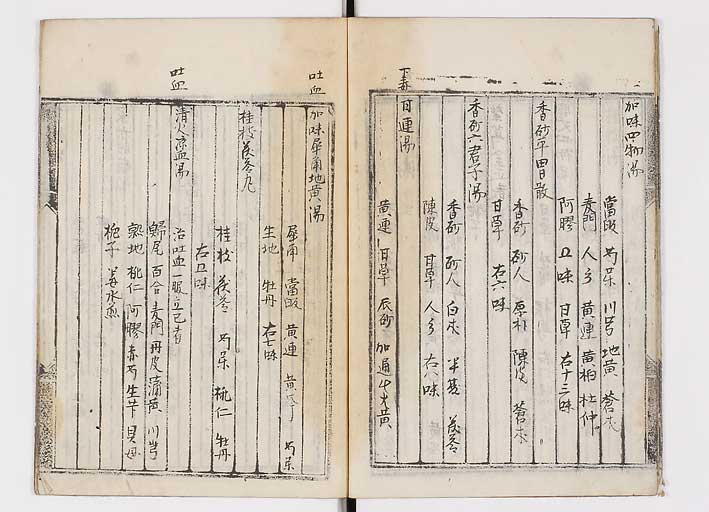 加味四物湯
當歸 芍藥 川芎 地黄 蒼朮
麦門 人參 黄連 黄柏 杜仲
阿膠 五味 甘草 右十三味
香砂平胃散
香砂 砂人 厚朴 陳皮 蒼朮
甘草 右六味
香砂六君子湯
香砂 砂人 白朮 半夏 茯苓
陳皮 甘草 人參 右八味
下毒
甘連湯
黄連 甘草 辰砂 加通 大黄
吐血
加味犀角地黄湯
犀角 當歸 黄連 黄芩 芍藥
生地 牡丹 右七味
桂枝茯苓丸
桂枝 茯苓 芍藥 桃仁 牡丹
右五味
吐血
清火凉血湯
治吐血一服立已者
歸尾 百合 麦門 丹皮 蒲黄 川芎
熟地 桃仁 阿膠 赤芍 生芐 貝母
梔子 姜水煎